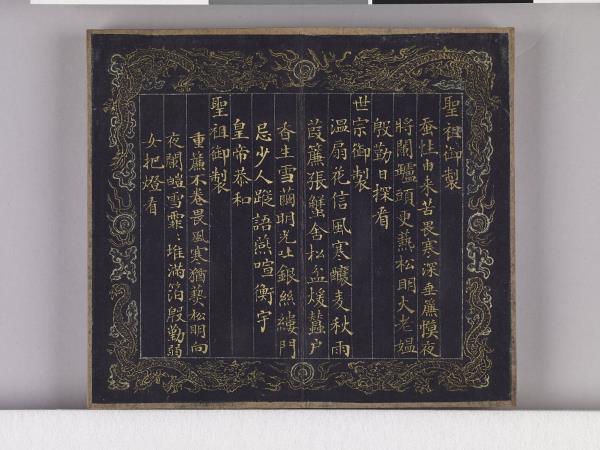 聖祖御製
蚕性由来苦畏寒深垂簾幙夜
將闌爐頭更爇松明火老媼
殷勤日探看
世宗御製
温扇花信風寒釀麦秋雨
葭簾張蟹舍松盆煖蠶户
香生雪繭明光吐銀絲縷門
忌少人蹤語燕喧衡宇
皇帝恭和
聖祖御製
重簾不卷畏風寒猶爇松明向
夜闌皚雪霏〻堆滿箔殷勤弱
女把燈看